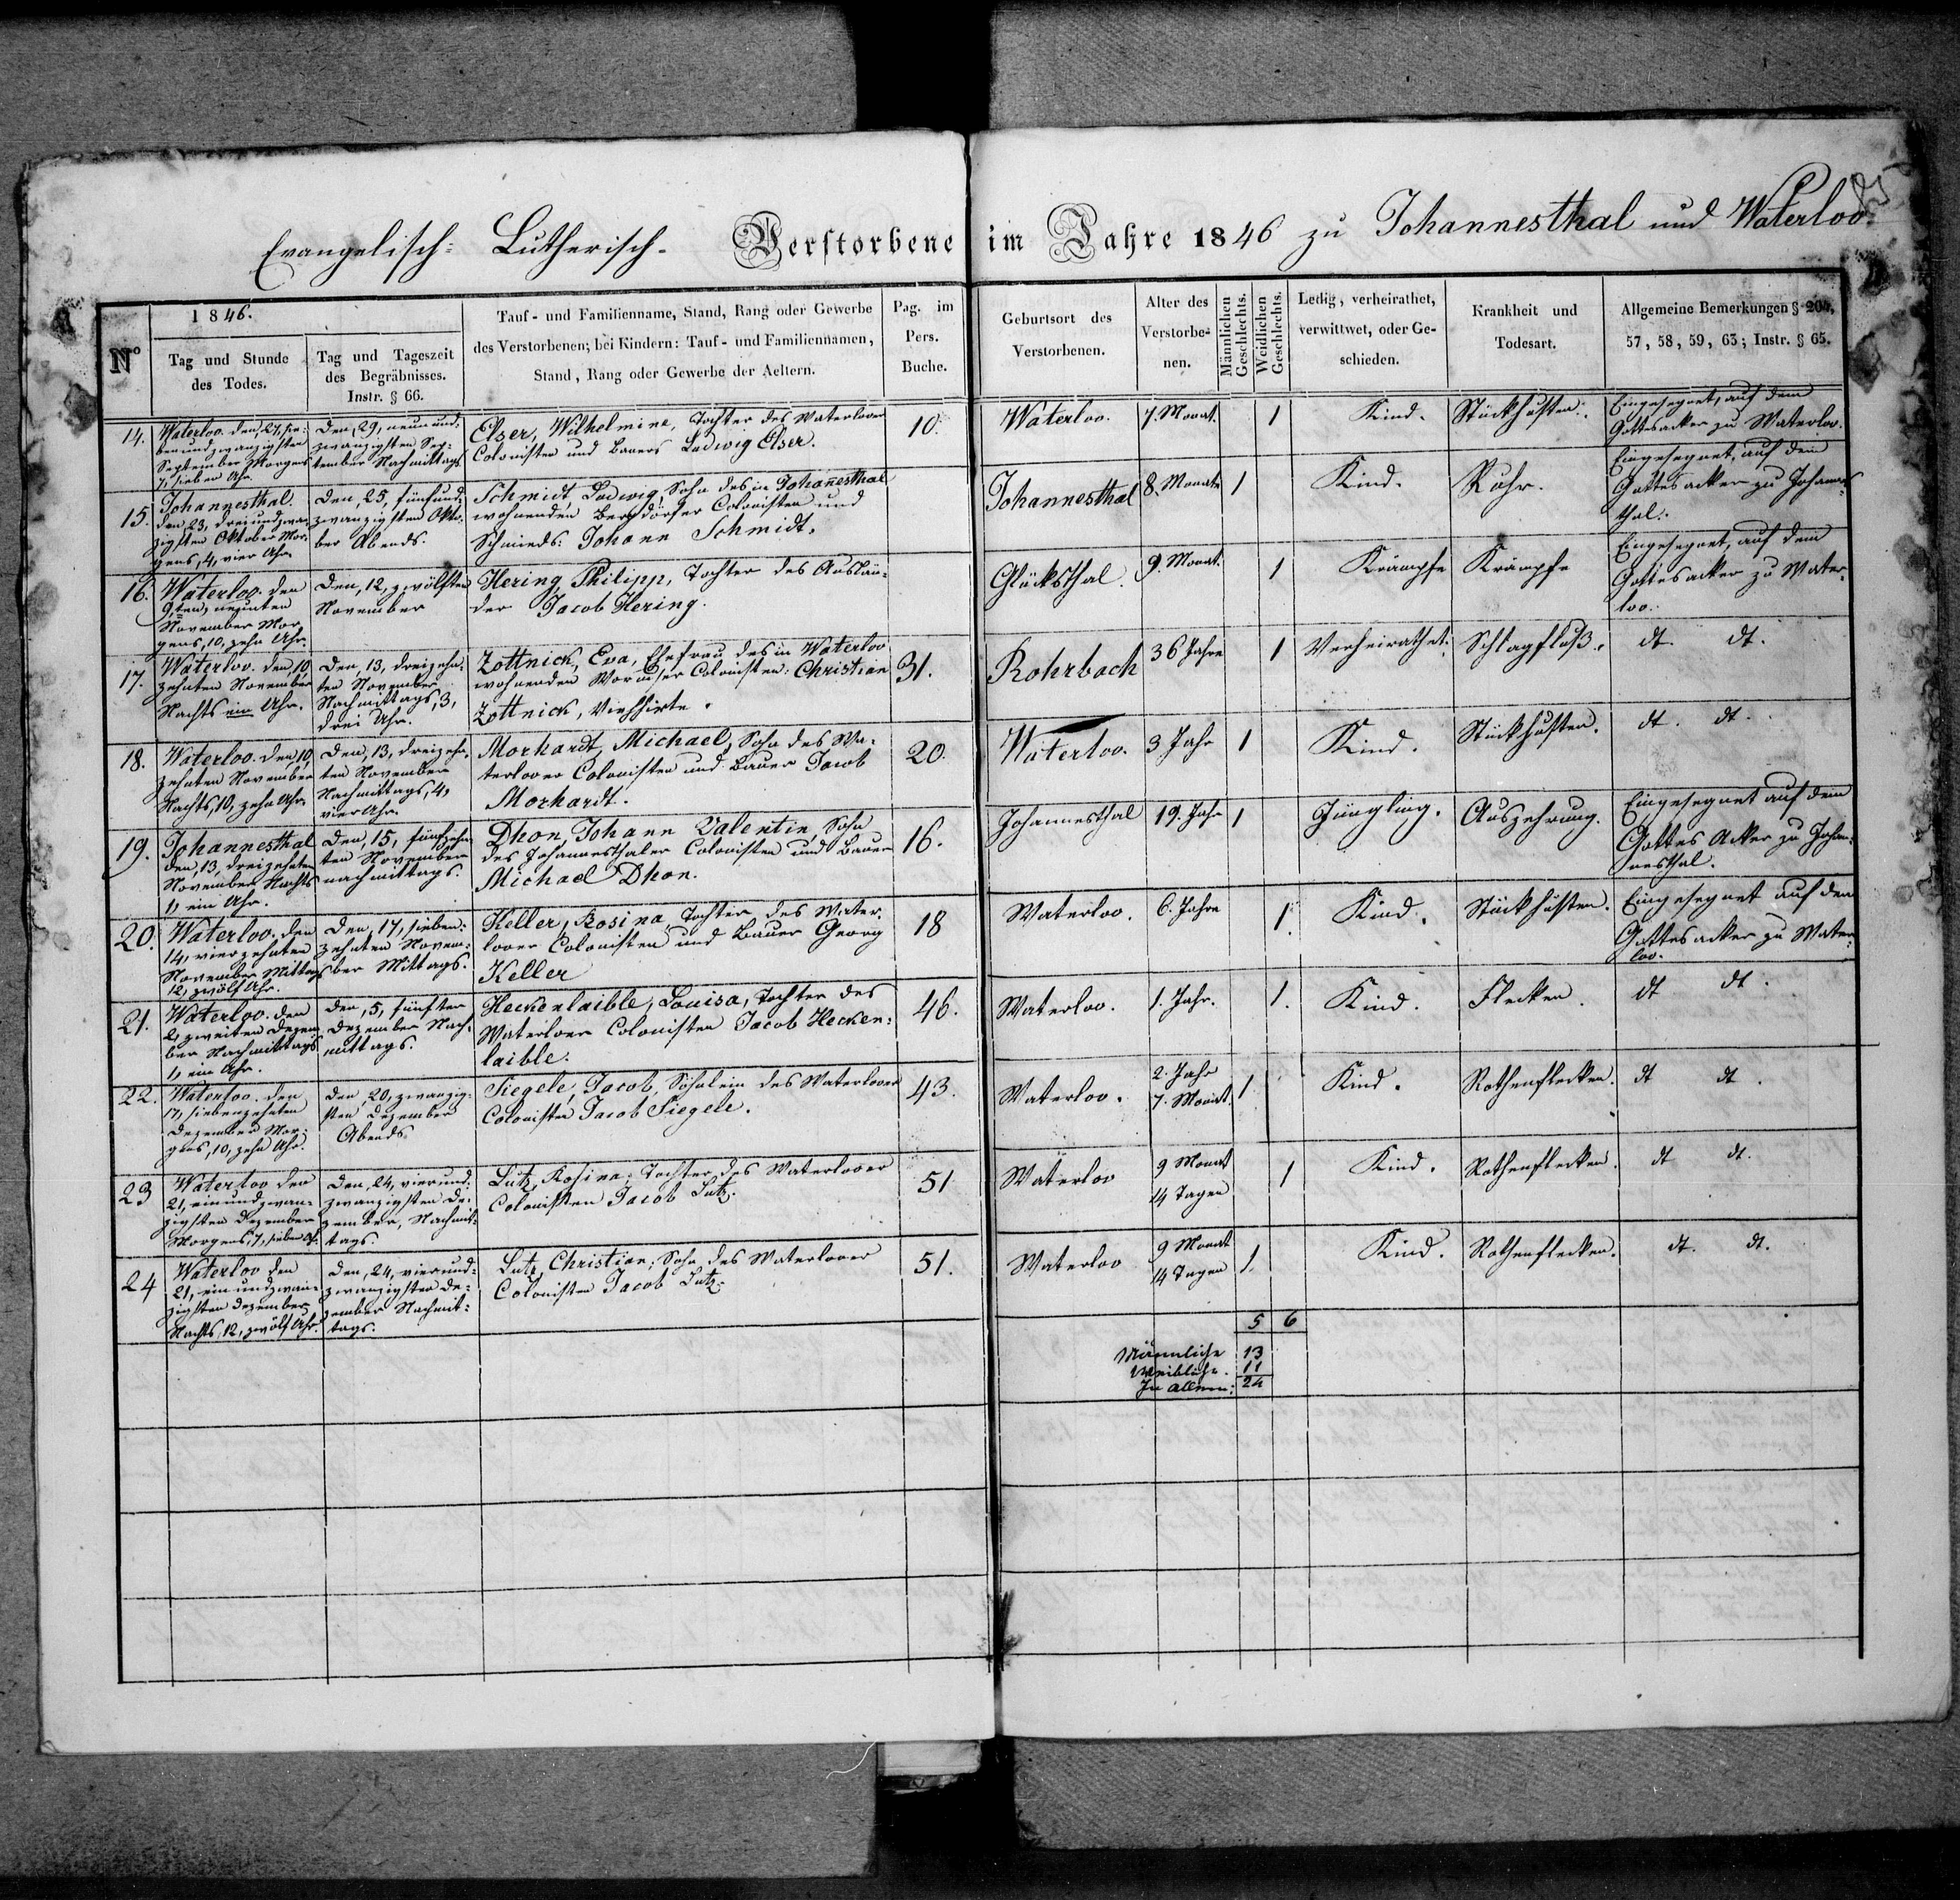 Evangelisch: Lutherisch- Verstorbene im Jahre 1846 zu Johannesthal und Waterloo.
N°
1846.
Tag und Stunde
des Todes.
Tag und Tageszeit
des Begräbnisses.
Instr. § 66.
Tauf- und Familienname, Stand, Rang oder Gewerbe
des Verstorbenen; bei Kindern: Tauf- und Familiennamen,
Stand, Rang oder Gewerbe der Aeltern.
Pag. im
Pers.
Buche.
Geburtsort des
Verstorbenen.
Alter des
Verstorbe-
nen.
Männlichen
Geschlechts.
Weiblichen
Geschlechts.
Ledig, verheirathet,
verwittwet, oder Ge-
schieden.
Krankheit und
Todesart.
Allgemeine Bemerkungen § 204,
57, 58, 59, 63; Instr. § 65.
14.
Waterloo. den, 27, sie-
ben und zwanzigsten
September Morgens
7, sieben Uhr.
Den, 29, neun und-
zwanzigsten Sep-
tember Nachmittags
Elser, Wilhelmine, Tochter des Waterlooer
Colonisten und Bauers Ludwig Elser.
10.
Waterloo.
7. Monat.
1
Kind.
Stückhusten.
Eingesegnet, auf dem
Gottesacker zu Waterloo.
15.
Johannesthal.
den 23, drei und zwan-
zigsten Oktober Mor-
gens, 4, vier Uhr.
Den, 25, fünfund-
zwanzigsten Okto-
ber Abends.
Schmidt, Ludwig, Sohn des in Johannesthal
wohnenden Bergdorfer Colonisten und
Schmieds: Johann Schmidt.
Johannesthal
8. Monate
1
Kind.
Ruhr.
Eingesegnet, auf dem
Gottesacker zu Johannes
thal.
16.
Waterloo. den
9,ten, neunten
November Mor-
gens, 10, zehn Uhr.
Den, 12, zwölften
November
Hering, Philipp, Tochter des Auslän-
der Jacob Hering.
Glücksthal.
9. Monat.
1
Krämpfe
Krämpfe
Eingesegnet, auf dem
Gottesacker zu Water-
loo.
17.
Waterloo. den, 10,
zehnten November
Nachts ein Uhr.
Den, 13, dreizehn-
ten November
Nachmittags, 3,
drei Uhr.
Zottnick, Eva, Ehefrau des in Waterloo
wohnenden Wormser Colonisten: Christian
Zottnick, Viehhirte.
31.
Rohrbach
36 Jahre
1
Verheirathet.
Schlagfluß.
dt. dt.
18.
Waterloo. den, 10,
zehnten November
Nachts, 10, zehn Uhr.
Den, 13, dreizehn-
ten November
Nachmittags, 4,
vier Uhr.
Morhardt, Michael, Sohn des Wa-
terlooer Colonisten und Bauer Jacob
Morhardt.
20.
Waterloo.
3 Jahr
1
Kind.
Stückhusten.
dt. dt.
19.
Johannesthal
den, 13, dreizehnten
November Nachts
1, ein Uhr.
Den, 15, fünfzehn-
ten November
nachmittags.
Dhon, Johann Valentin, Sohn
des Johannesthaler Colonisten und Bauer
Michael Dhon.
16.
Johannesthal
19. Jahr
1
Jüngling.
Auszehrung.
Eingesegnet auf dem
Gottes Acker zu Johan-
nesthal.
20.
Waterloo. den
14, vierzehnten
November Mittags
12, zwölf Uhr.
Den, 17, sieben-
zehnten Novem-
ber Mittags.
Keller, Rosina, Tochter des Water-
looer Colonisten und Bauer Georg
Keller
18
Waterloo.
6. Jahre
1.
Kind.
Stückhusten.
Eingesegnet auf dem
Gottesacker zu Water-
loo.
21.
Waterloo. den
2, zweiten Dezem
ber Nachmittags
1, ein Uhr.
den, 5, fünften
Dezember Nach-
mittags.
Heckenlaible, Louisa, Tochter des
Waterlooer Colonisten Jacob Hecken-
laible.
46.
Waterloo.
1. Jahr.
1.
Kind.
Flecken.
dt dt.
22.
Waterloo. den
17, siebenzehnten
Dezember Mor-
gens, 10, zehn Uhr.
Den, 20, zwanzig-
sten Dezember
Abends.
Siegele, Jacob, Söhnlein des Waterlooer
Colonisten Jacob Siegele.
43.
Waterloo.
2. Jahr
7. Monat.
1
Kind.
Rothenflecken.
dt dt.
23
Waterloo den
21, einundzwan-
zigsten Dezember
Morgens, 7, sieben Uhr.
Den, 24, vierund-
zwanzigsten De-
zember, Nachmit-
tags.
Lutz, Rosina: Tochter des Waterlooer
Colonisten Jacob Lutz.
51
Waterloo
9 Monat
14 Tagen
1
Kind.
Rothenflecken.
dt dt.
24
Waterloo den
21, einundzwan-
zigsten Dezember
Nachts, 12, zwölf Uhr.
Den, 24, vierund-
zwanzigsten De-
zember Nachmit-
tags.
Lutz, Christian; Sohn des Waterlooer
Colonisten Jacob Lutz.
51.
Waterloo
9 Monat
14 Tagen
1.
Kind.
Rothenflecken.
dt. dt.
5 6
Männliche 13
Weibliche. 11
In allem: 24